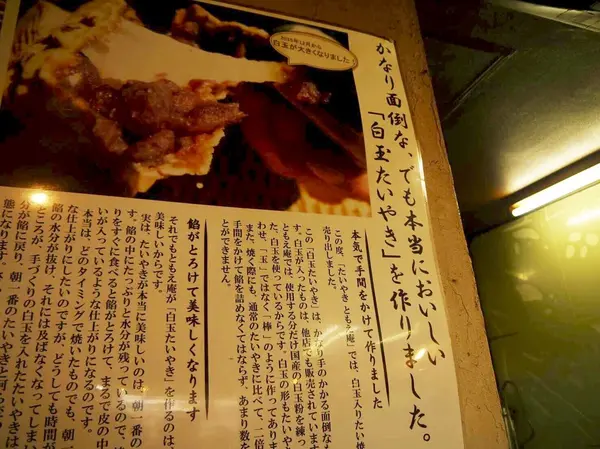 2015年12月から
白玉が大きくなりました
かなり面倒な、でも本当においしい
「白玉たいやき」を作りました。
本気で手間をかけて作りました
この度、「たいやき ともえ庵」では、白玉入りたい焼
売り出しました。
この「白玉たいやき」は、かなり手のかかる面倒なも
す。白玉が入ったものは、他店でも販売されています
ともえ庵では、使用する分だけ国産の白玉粉を練っ
た、白玉を使っているからです。白玉の形もたいや
わせ、「玉」ではなく「棒」のように作っておりま
また、焼く際にも、通常のたいやきに比べて、二倍
手間をかけて餡を詰めなくてはならず、あまり数を
とができません。
餡がとろけて美味しくなります
それでもともえ庵が「白玉たいやき」を作るのは、
美味しいからです。
実は、たいやきが本当に美味しいのは、朝一番の
す。餡の中にたっぷりと水分が残っているので、
りをすぐに食べると餡がとろけて、まるで皮の中
いが入っているような仕上がりになるのです。
本当は、どのタイミングで焼いたものでも、朝一
な仕上がりにしたいのですが、どうしても時間が
餡の水分が抜け、それには及ばなくなってしまい
ところが、手づくりの白玉を入れたたいやきは
分が餡に戻り、朝一番のたいやきと何ら
態になります。